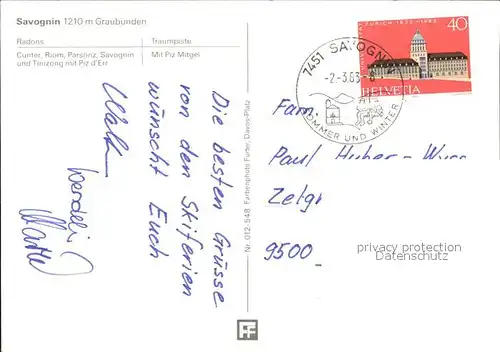 Savognin 1210 m Graubünden
Radons
Cunter, Riom, Parsonz, Savognin
und Tinizong mit Piz d'Err
Traumpiste
Mit Piz Mitgel
Die besten Grüsse
von den Skiferien
wünscht Euch
Nr. 012-548 Farbenphoto Furter, Davos-Platz
ZÜRICH 1833-1983
40
HELVETIA
7451 SAVOGNIN
-2.-3.83-
SOMMER UND WINTER
Fam.
Paul Huber-
9500
privacy protection
Datenschutz